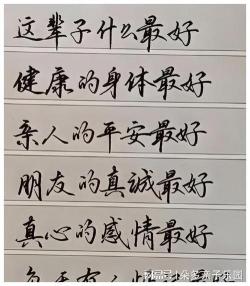 这辈子什么最好
健康的身体最好
亲人的平安最好
朋友的真诚最好
真心的感情最好
每天有人
搜狐号@小朵多亲子乐园